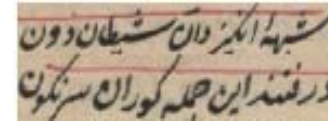 شبههٔ انگیزد آن شیطان دون
درفتند این جمله کوران سرنگون